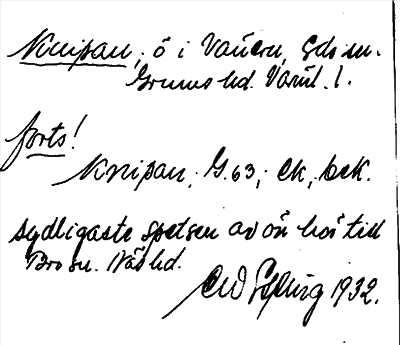 Knipan, ö i Vänern, Gds m.
Grums hd. Värml. l.
forts!
Knipan, G. 63; Ek, bek.
sydligaste spetsen av ön hör till
Bro sn. Näs hd.
1932.